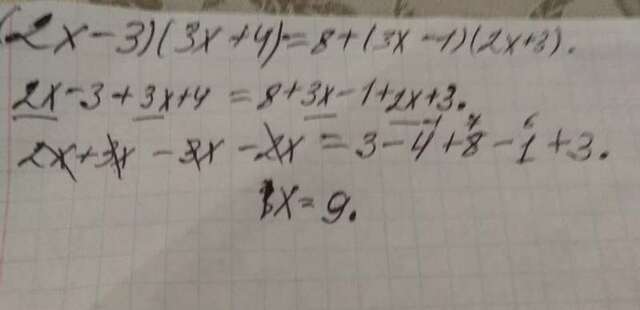 (2x-3)(3x+4)=8+(3x-1)(2x+3).
2x-3+3x+4=8+3x-1+2x+3.
2x+3x-3x-2x=3-4+8-1+3.
x=9.